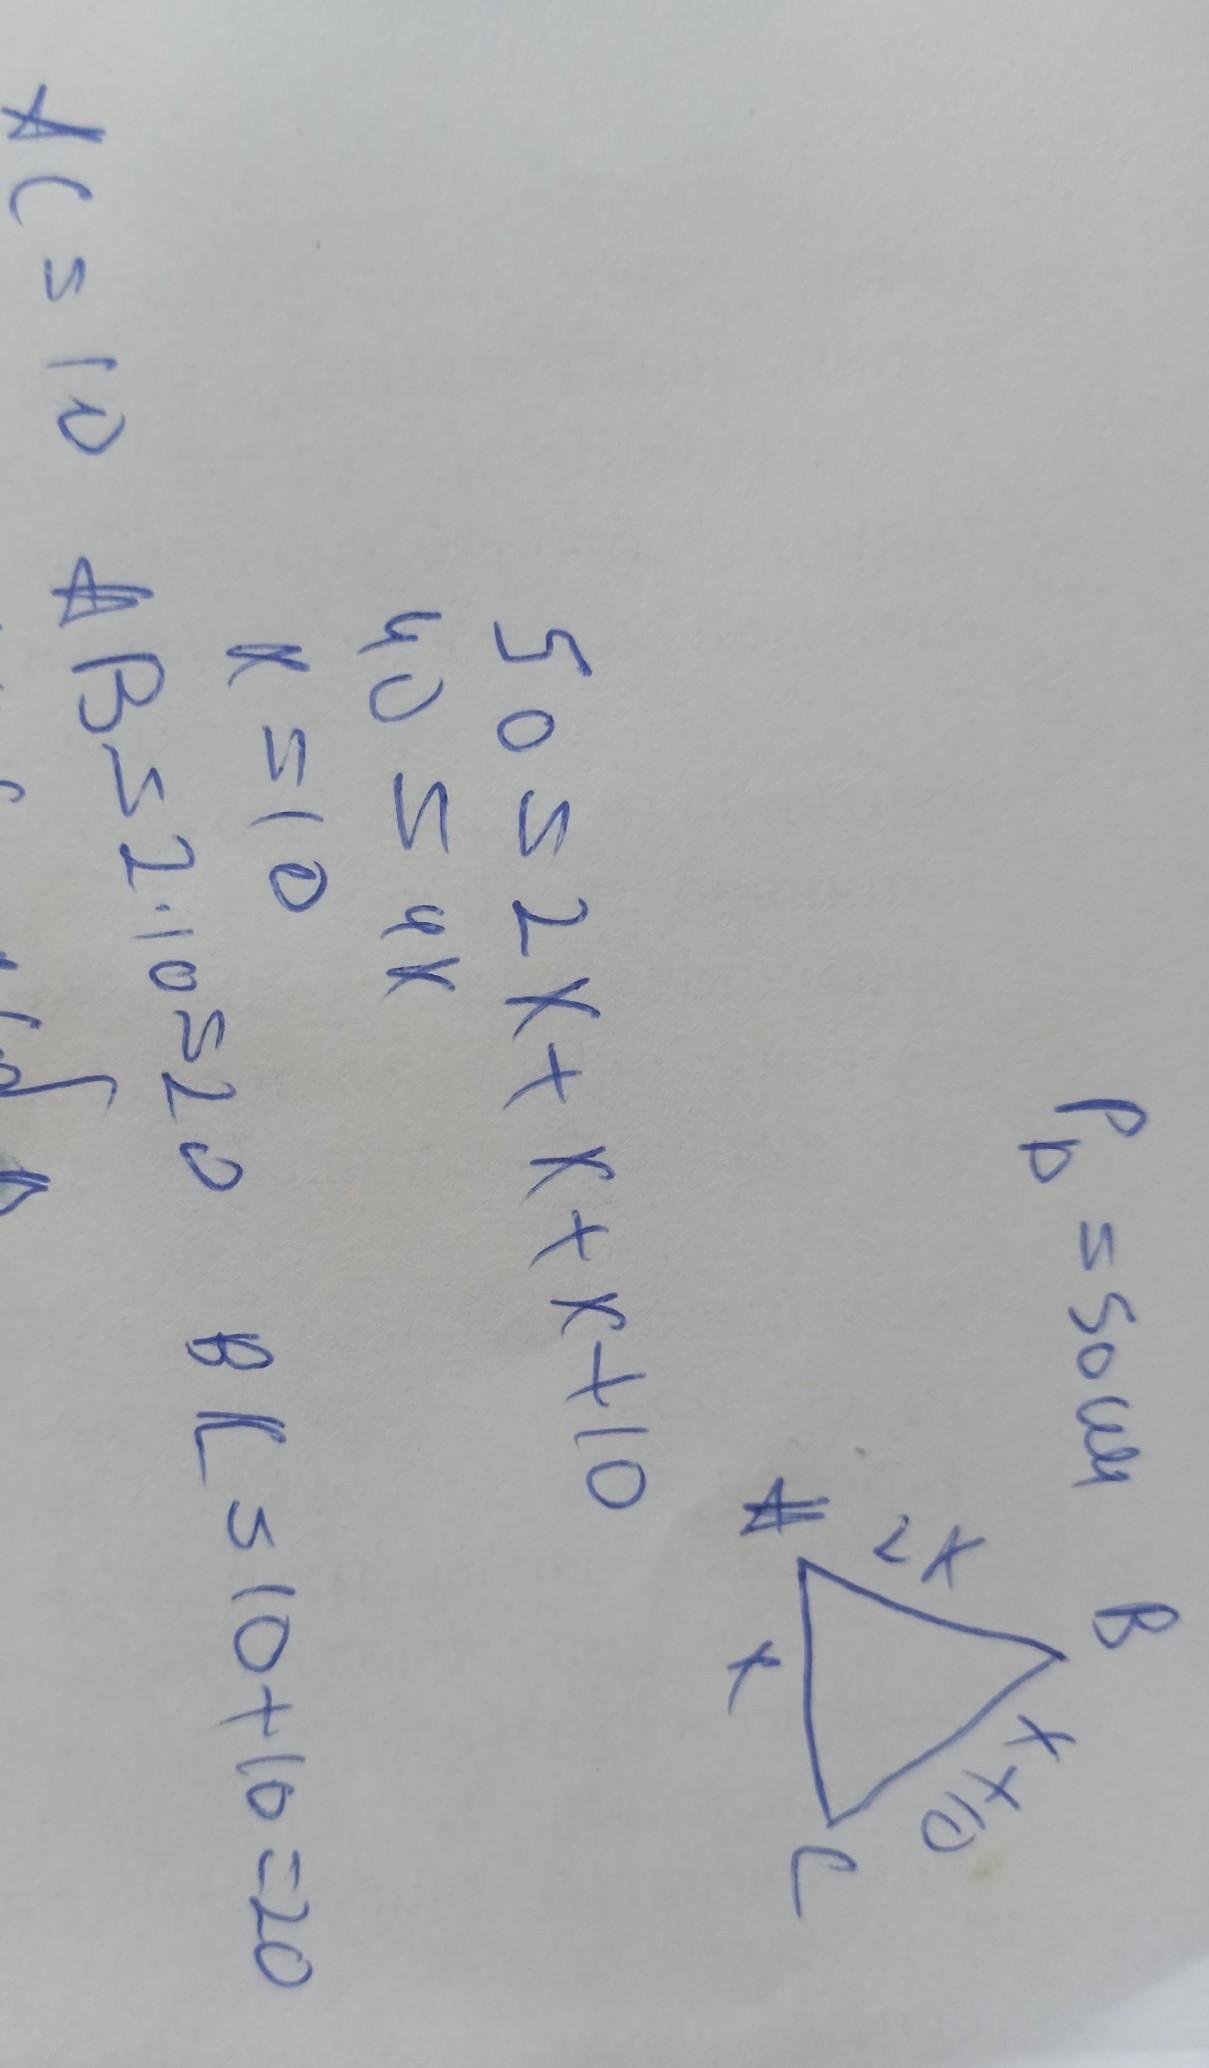 P_Δ = 50 см
B
2x
x+10
A
x
C
50 = 2x + x + x + 10
40 = 4x
x = 10
AC = 10 AB = 2·10 = 20 BC = 10 + 10 = 20